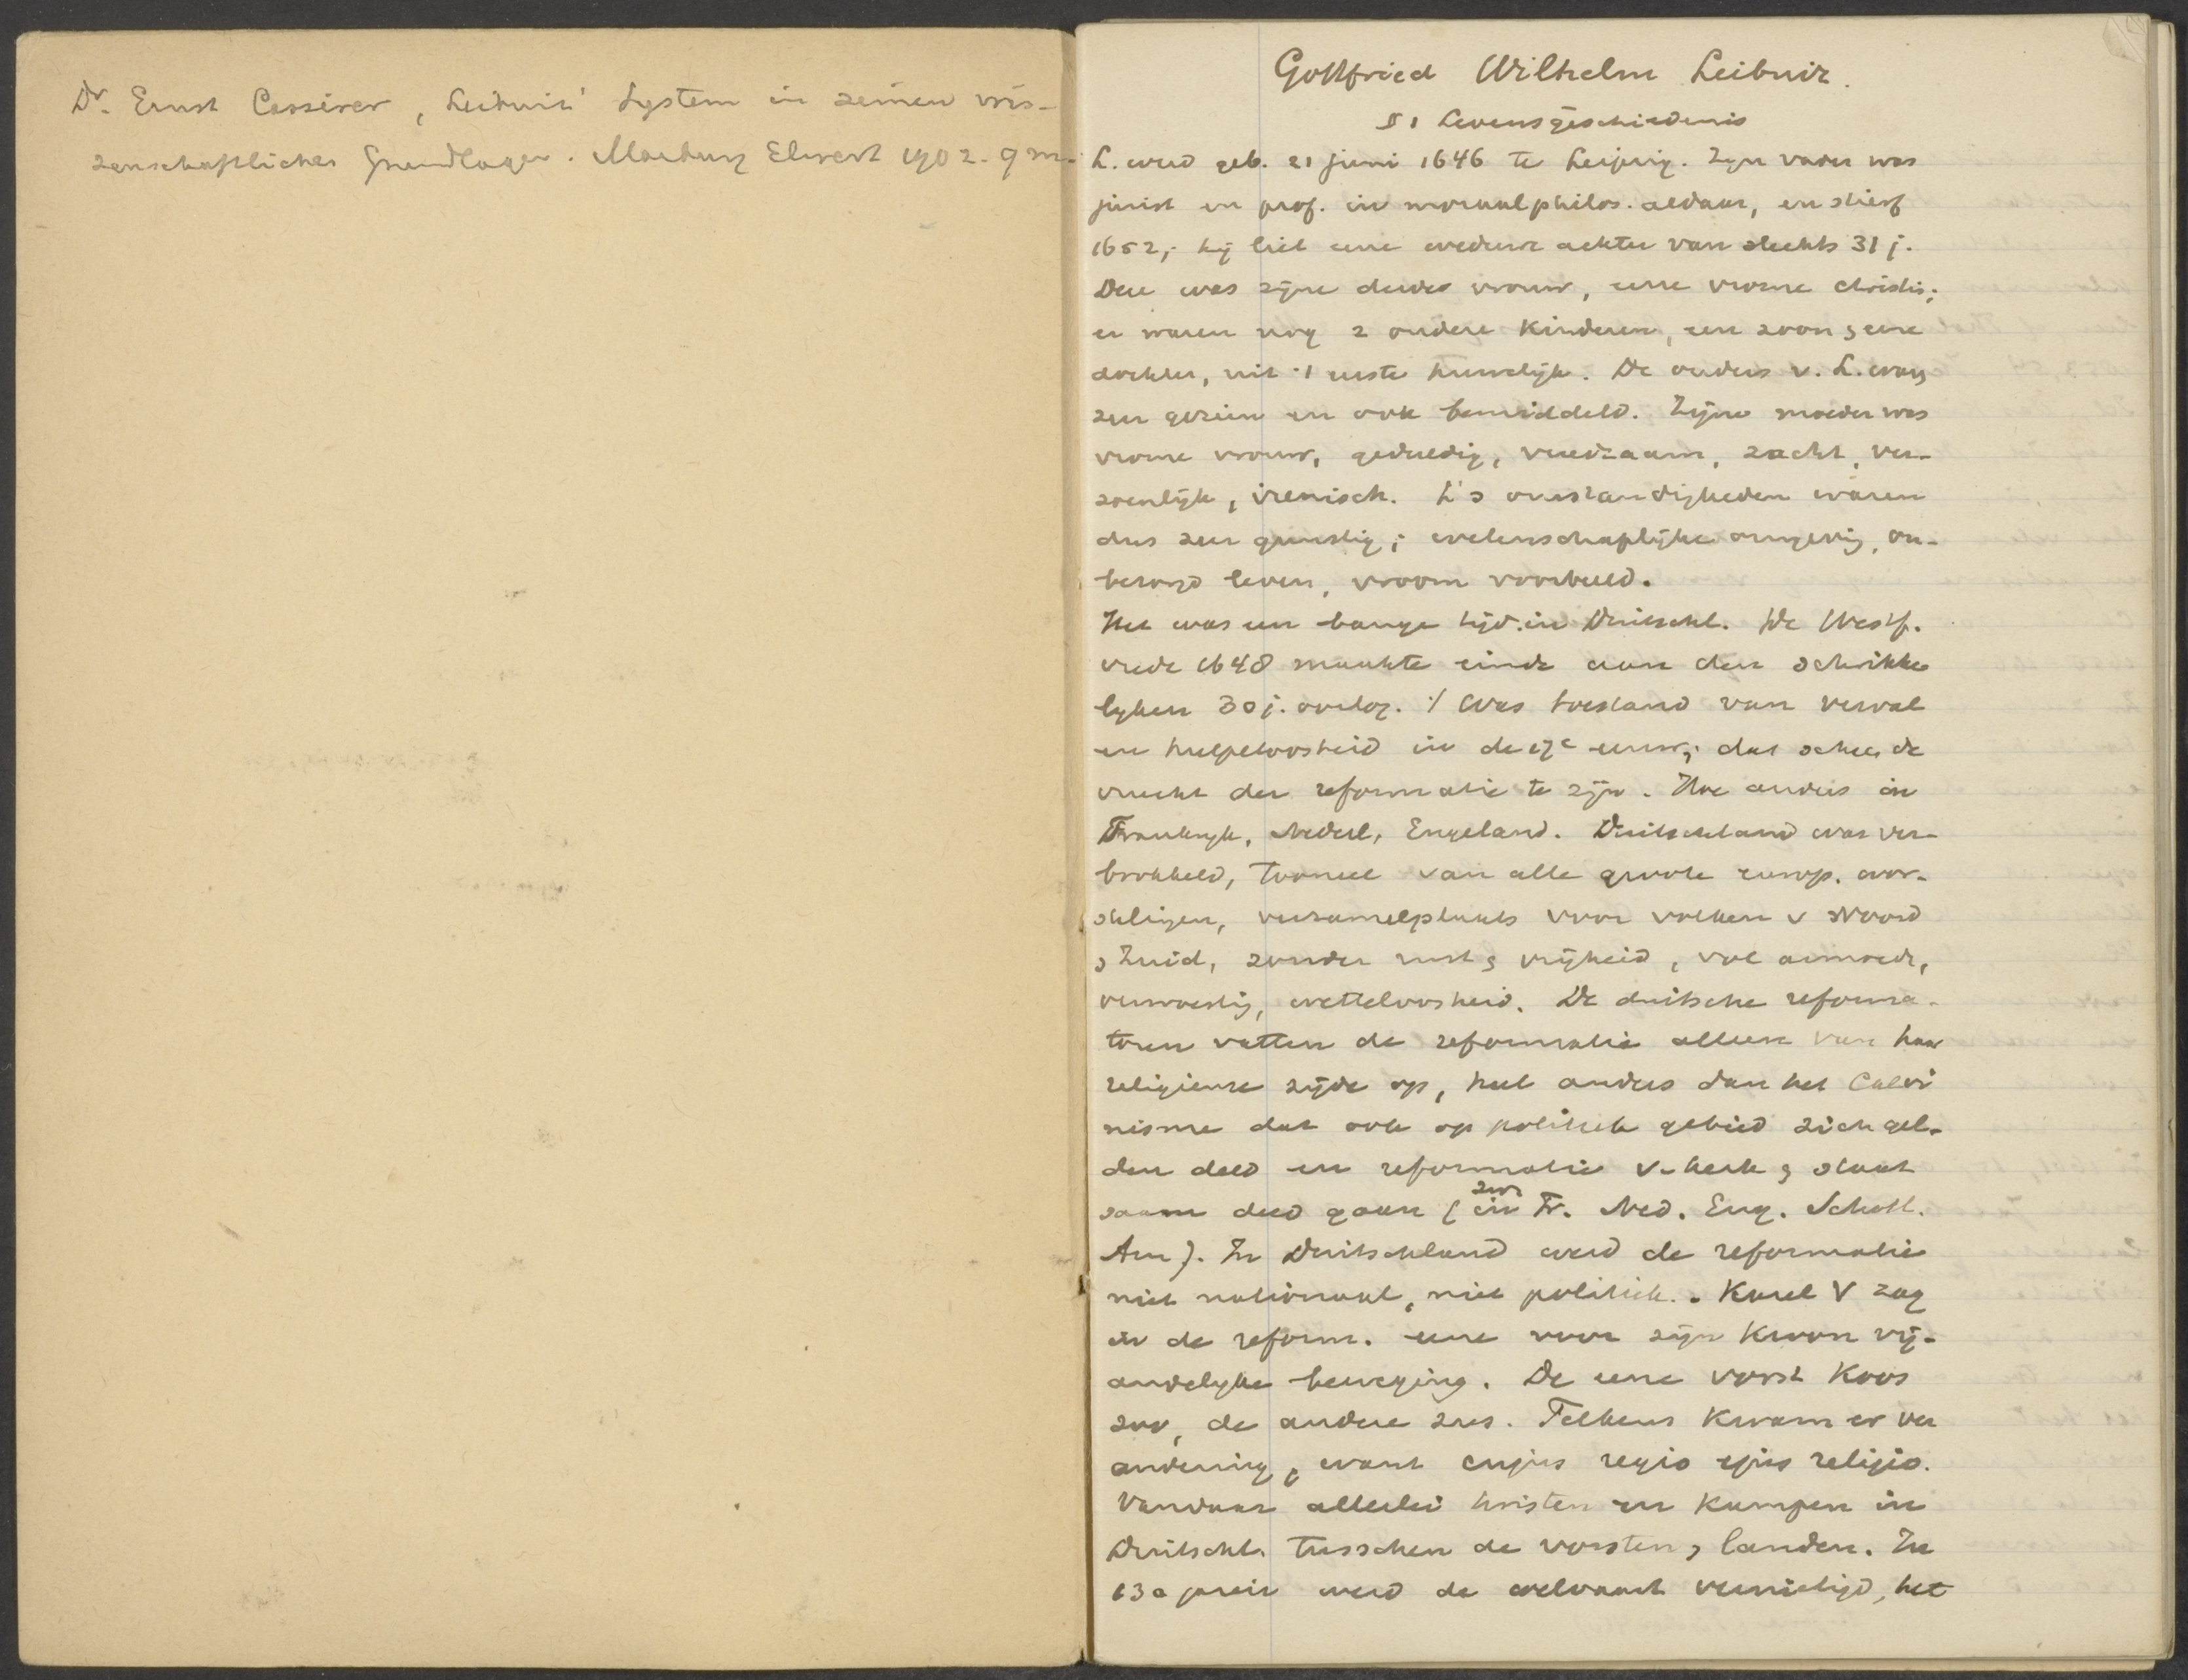 Dr. Ernst Cassirer, Leibniz' System in seinen wis-
senschaftlichen Grundlagen. Marburg Elwert 1902. 9 m.
Gottfried Wilhelm Leibniz.
§ 1 Levensgeschiedenis
L. werd geb. 21 juni 1646 te Leipzig. Zijn vader was
jurist en prof. in moraalphilos. aldaar, en stierf
1652; hij liet eene weduwe achter van slechts 31 j.
Deze was zijne derde vrouw, eene vrome christin;
er waren nog 2 andere kinderen, een zoon & eene
dochter, uit 't eerste huwelijk. De ouders v. L. waren
zeer gezien en ook bemiddeld. Zijne moeder was
vrome vrouw, geduldig, vreedzaam, zacht, ver-
zoenlijk, irenisch. L's omstandigheden waren
dus zeer gunstig; wetenschaplijke omgeving, on-
bezorgd leven, vroom voorbeeld.
Het was een bange tijd in Duitschl. De Westf.
vrede 1648 maakte einde aan den schrikke
lyken 30 j. oorlog. 't Was toestand van verval
en hulpeloosheid in de 17e eeuw; dat scheen de
vrucht der reformatie te zijn. Hoe anders in
Frankryk, Nederl, Engeland. Duitschland was ver-
brokkeld, tooneel van alle groote europ. oor-
logen, verzamelplaats voor volken v Noord
& Zuid, zonder rust & vrijheid, vol armoede,
verwoesting, wetteloosheid. De duitsche reforma-
toren vatten de reformatie alleen van haar
religieuse zijde op, heel anders dan het Calvi
nisme dat ook op politiek gebied zich gel-
den deed en reformatie v. kerk & staat
saam deed gaan (zoo in Fr. Ned. Eng. Schotl.
Am). In Duitschland werd de reformatie
niet nationaal, niet politiek. Karel V zag
in de reform. eene voor zijn kroon vij-
andelyke beweging. De eene vorst koos
zoo, de andere zus. Telkens kwam er ver
andering, want cujus regio ejus religio.
Vandaar allerlei twisten en kampen in
Duitschl. tusschen de vorsten & landen. In
130 jaren werd de welvaart vernietigd, het